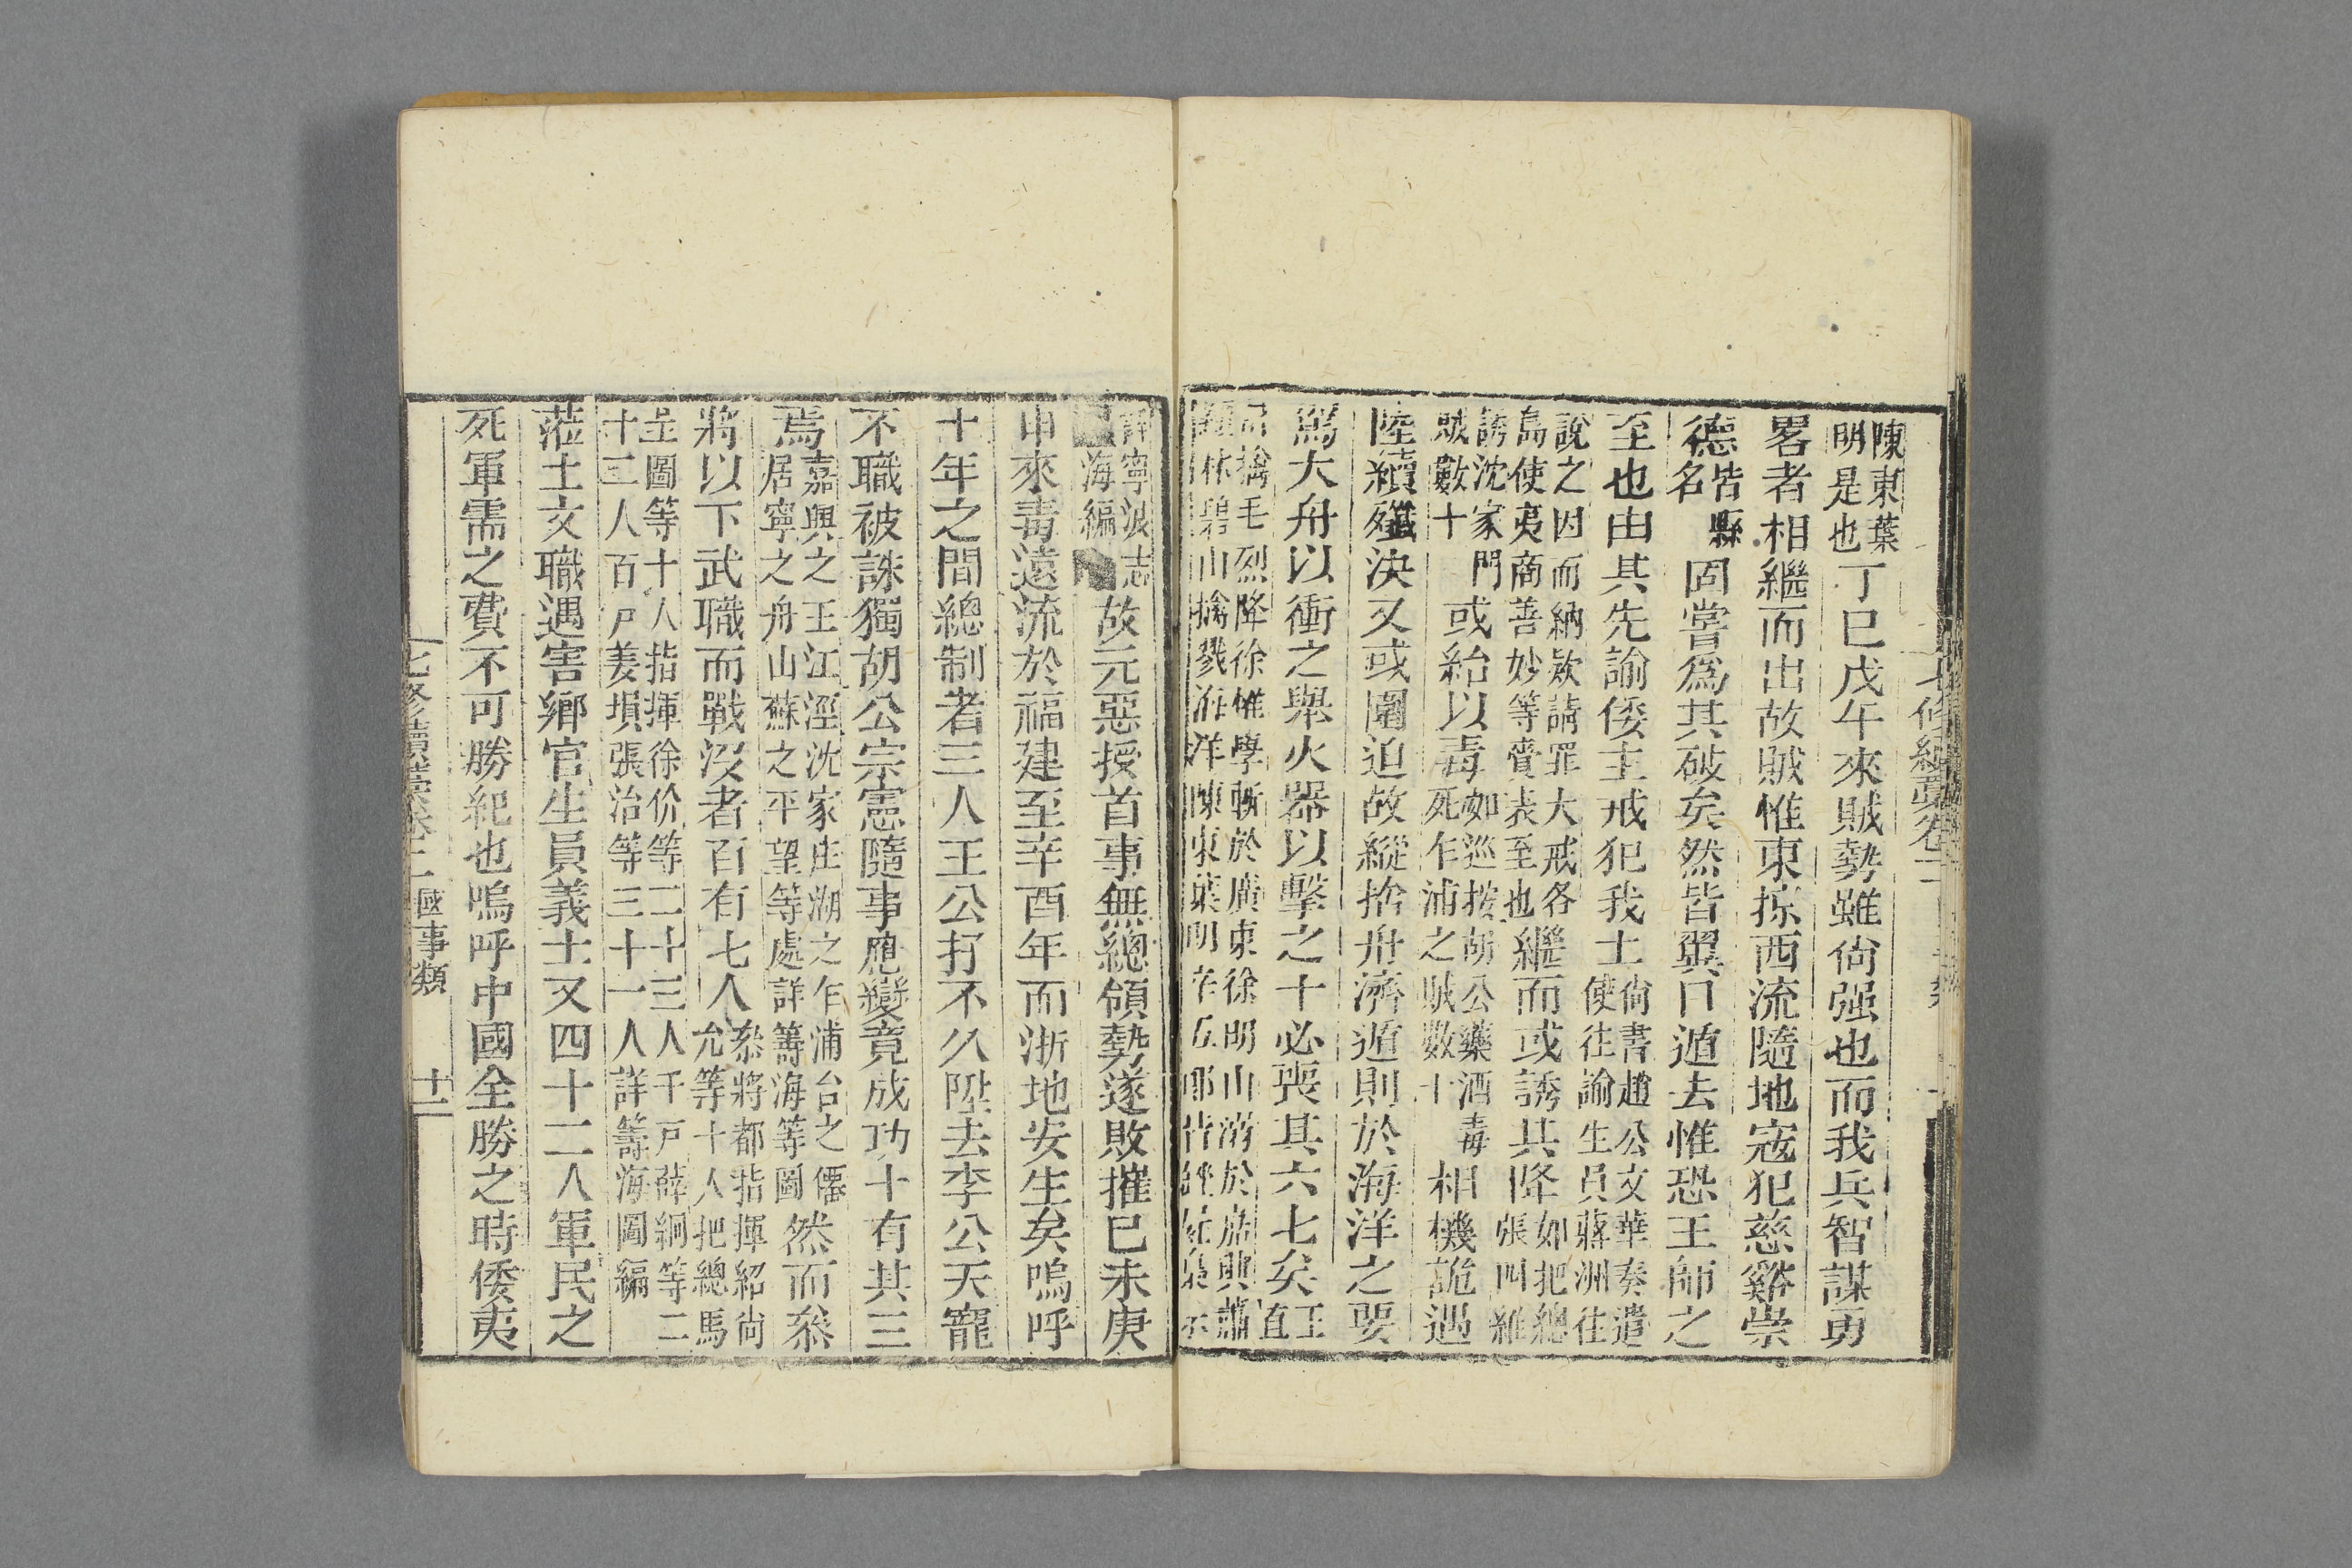 陳東葉明是也丁巳戊午來賊勢雖尙强也而我兵智謀勇
畧者相繼而出故賊惟東掠西流隨地寇犯慈谿崇
德皆縣名固嘗爲其破矣然皆翼口遁去惟恐王師之
至也由其先諭倭主戒犯我土尙書趙公文華奏遣使往諭生員蔣洲往
說之因而納欵請罪大戒各島使夷商善妙等賫表至也繼而或誘其降如把總張四維
誘沈家門賊數十或紿以毒如巡按胡公藥酒毒死乍浦之賊數十相機詭遇
陸續殲決又或圍迫故縱捨舟濟遁則於海洋之要
駕大舟以衝之舉火器以擊之十必喪其六七矣王直
擒毛烈降徐惟學斬於廣東徐明山溺於嘉興蕭林碧山擒戮海洋陳東葉明辛五郎皆
詳寧波志海編故元惡授首事無總領勢遂敗摧已未庚
申來毒遠流於福建至辛酉年而浙地安生矣嗚呼
十年之間總制者三人王公抒不久陞去李公天寵
不職被誅獨胡公宗憲隨事應變竟成功十有其三
焉嘉興之王江涇沈家庄湖之乍浦台之僊居寧之舟山蘇之平望等處詳籌海等圖然而叅
將以下武職而戰沒者百有七人叅將都指揮紹尙允等十人把總馬
圖等十人指揮徐价等二十三人千戸薛絅等二十三人百戸姜塤張治等三十一人詳籌海圖編
蒞土文職遇害鄉官生員義士又四十二人軍民之
死軍需之費不可勝紀也嗚呼中國全勝之時倭夷
七修續藁卷二 國事類 十二